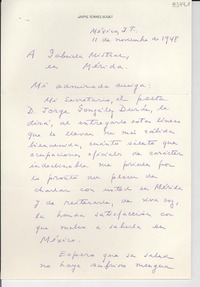 JAIME TORRES BODET
México, D.F.
11 de noviembre de 1948
A Gabriela Mistral,
en Mérida.
Mi admirada amiga:
Mi Secretario, el poeta
D. Jorge González Durán, le
dirá, al entregarle estas líneas
que le llevan mi más cálida
bienvenida, cuánto siento que
ocupaciones oficiales de carácter
indeclinable me priven por
lo pronto del placer de
charlar con usted en Mérida
y de reiterarle, de viva voz,
la honda satisfacción con
que mira a saberla en
México.
Espero que su salud
no haya sufrido mengua